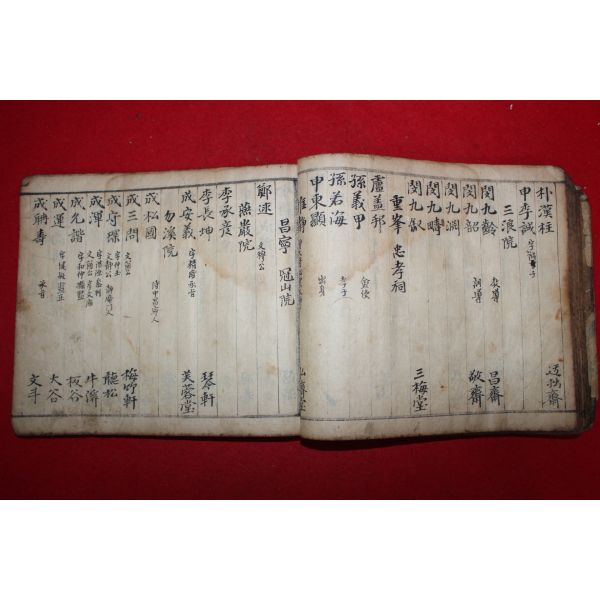 朴漢柱 迃拙齋
申季誠
三浪院
閔九齡 教導 昌齋
閔九韶 訓導 敬齋
閔九淵
閔九疇
閔九敘 三梅堂
重峯 忠孝祠
盧盖邦
孫義甲 僉使
孫若海 孝子
申東顯 出身
昌寧 冠山院
鄭逑 文穆公
燕巖院
李承彦
李長坤 琴軒
成安義 芙蓉堂
勿溪院
成松國 侍中
成三問 文忠公 梅竹軒
成守琛 字仲玉 聽松
成渾 牛溪
成允諧 字和仲 板谷
成運 字健叔 大谷
成聃壽 文斗